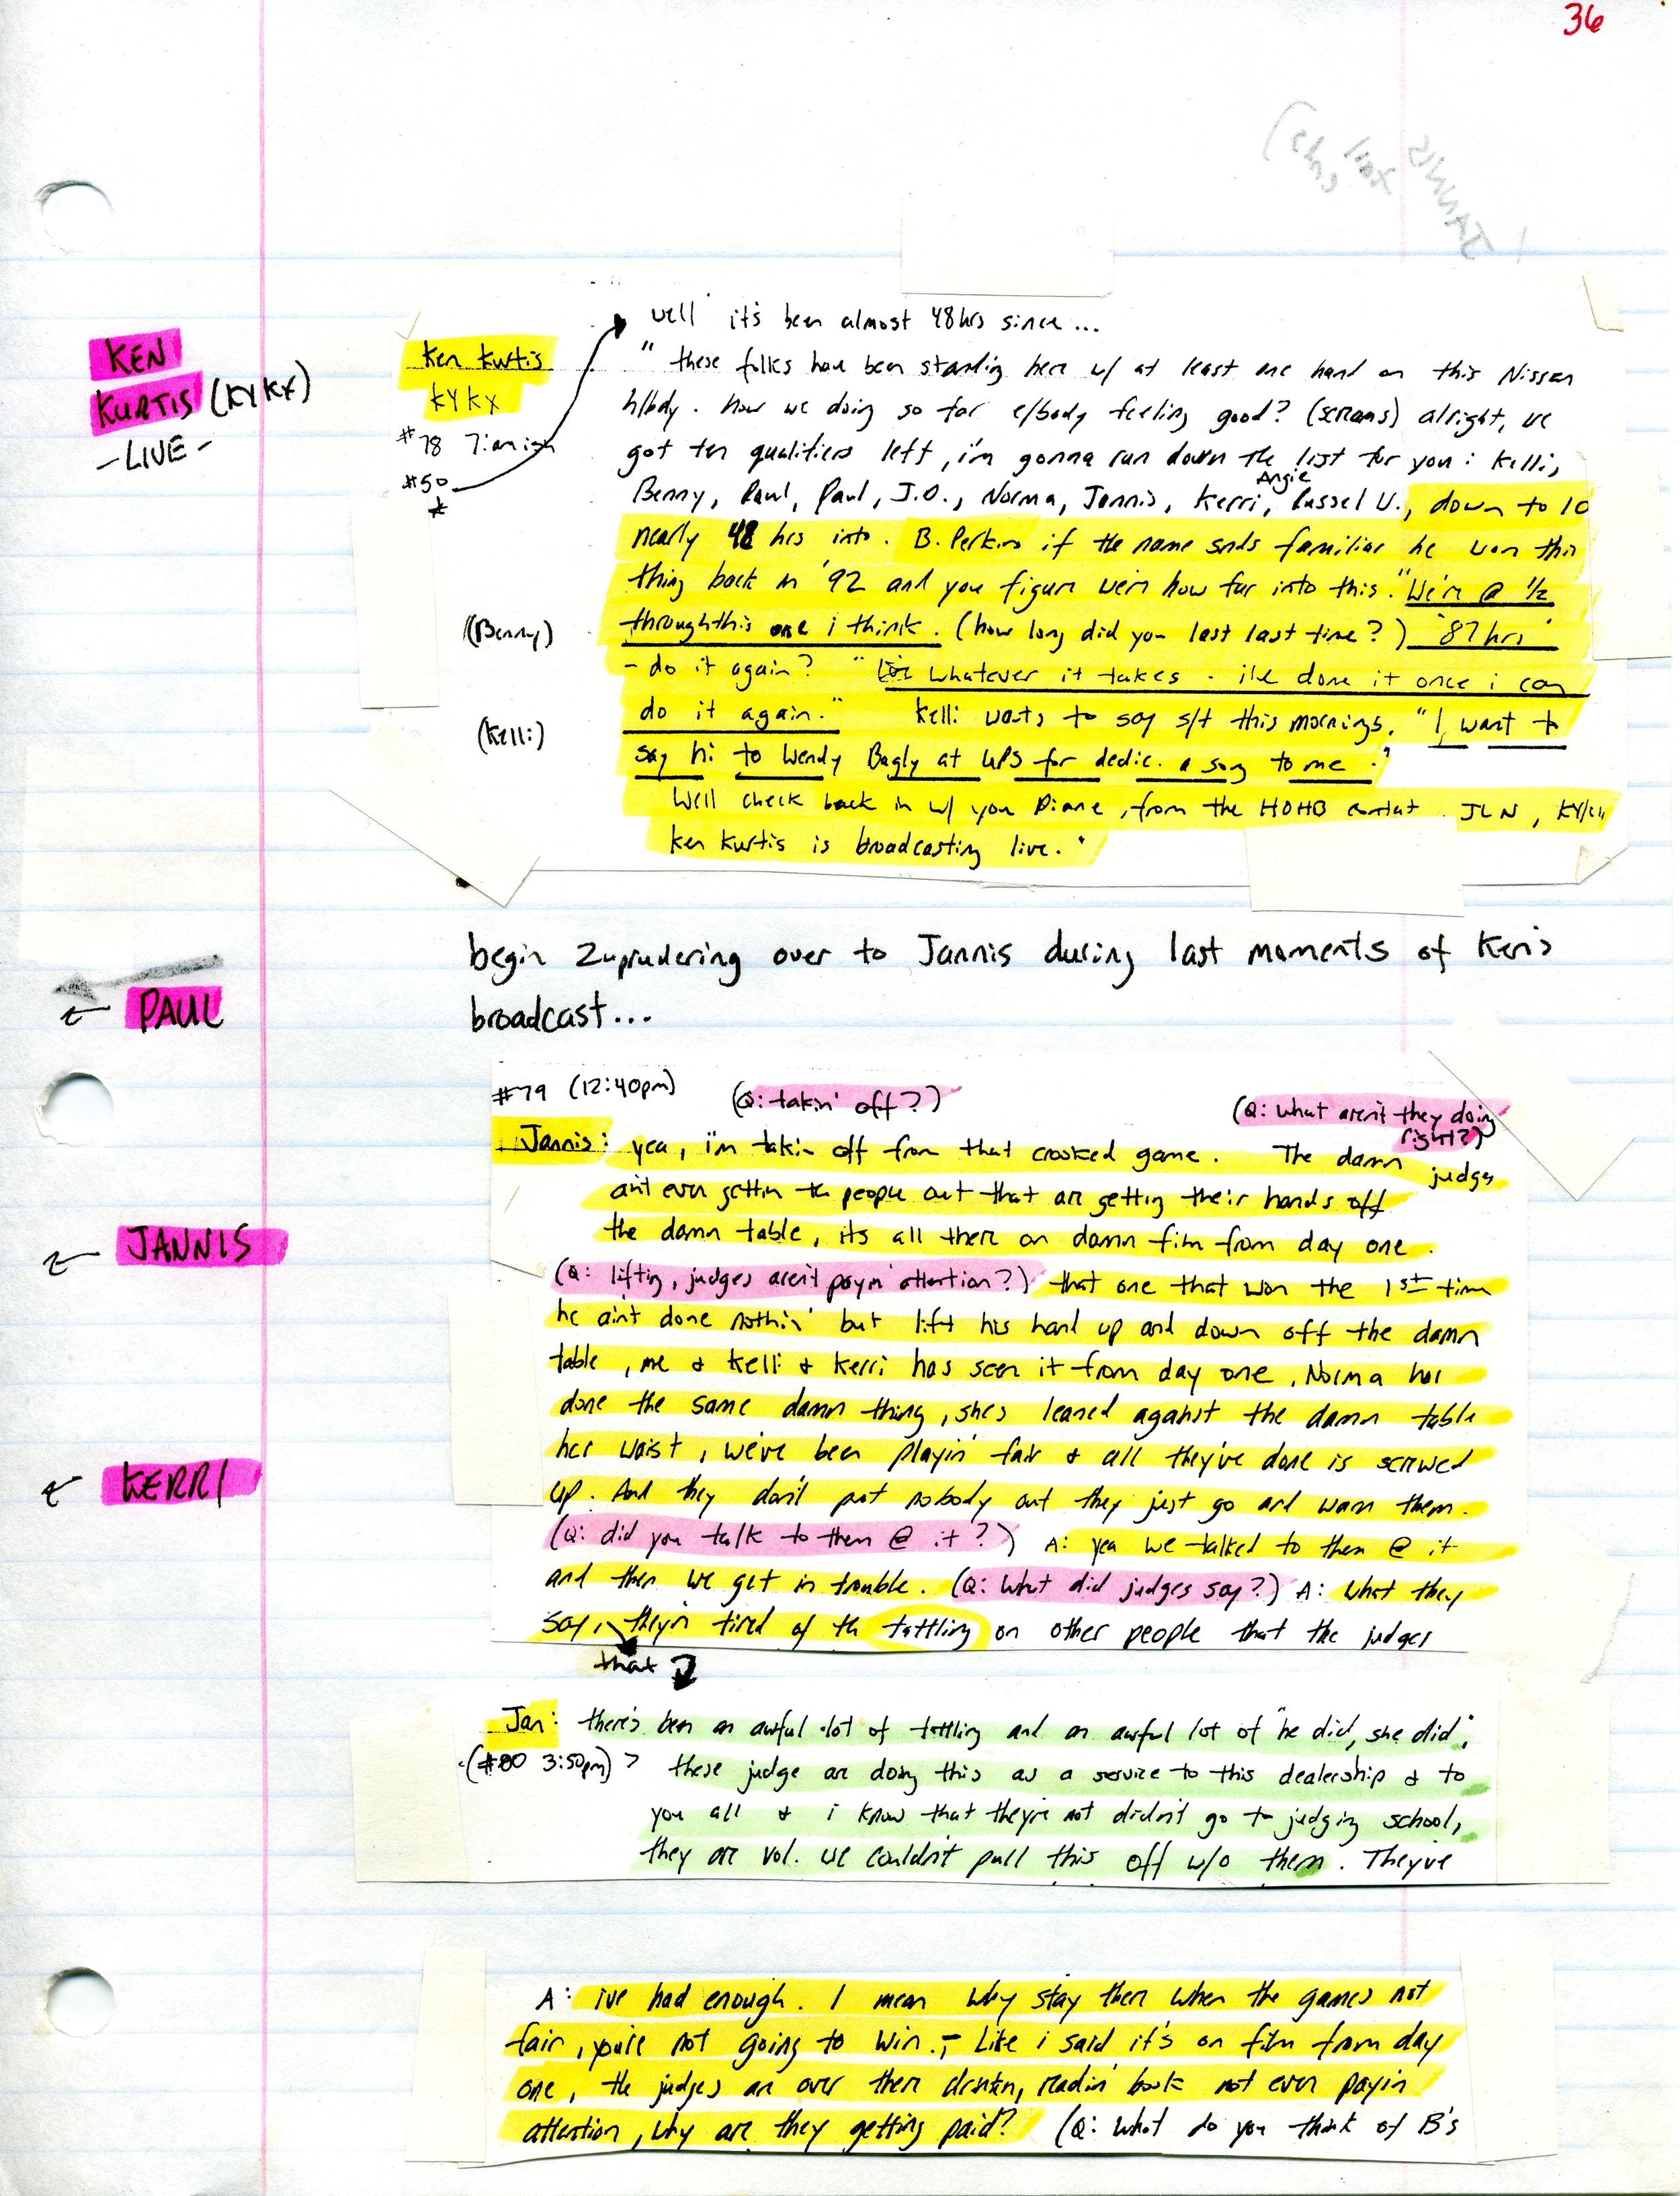 36
KEN
KURTIS (KYKX)
-LIVE-
ken kurtis
KYKX
#78 7:amish
#50
*
well it's been almost 48hrs since...
" these folks have been standing here w/ at least one hand on this Nissan
h/body. How we doing so far e/body feeling good? (screams) alright, we
got ten qualifiers left, i'm gonna run down the list for you: Kelli,
Angie
Benny, Paul, Paul, J.D., Norma, Jannis, Kerri, Russel U., down to 10
nearly 48 hrs into. B. Perkins if the name snds familiar he won this
thing back in '92 and you figure we're how far into this. "We're @ 1/2
(Benny)
through this one i think. (how long did you last last time?) "87 hrs"
- do it again? " whatever it takes - i've done it once i can
do it again." Kelli wants to say s/t this mornings. "I want to
(Kelli)
say hi to Wendy Bagly at UPS for dedic. a song to me."
We'll check back in w/ you Diane, from the HOHB contest JLN,
ken kurtis is broadcasting live."
begin Zuprudering over to Jannis during last moments of Ken's
broadcast...
← PAUL
#79 (12:40pm) (Q: takin' off?) (Q: What aren't they doing
right?)
Jannis: yea, i'm takin off from that crooked game. The damn judges
ain't even gettin the people out that are getting their hands off
the damn table, its all there on damn film from day one.
← JANNIS
(Q: lifting, judges aren't payin' attention?) that one that won the 1st time
he ain't done nothin' but lift his hand up and down off the damn
table, me & Kelli & Kerri has seen it from day one, Norma has
done the same damn thing, she's leaned against the damn table
her waist, we've been playin' fair & all they've done is screwed
← KERRI
up. And they don't put nobody out they just go and warn them.
(Q: did you talk to them @ it?) A: yea we talked to them @ it
and then we get in trouble. (Q: What did judges say?) A: what they
say, they're tired of the tattling on other people that the judges
that
Jan: there's been an awful lot of tattling and an awful lot of "he did, she did",
(#80 3:50pm) > these judge are doing this as a service to this dealership & to
you all & i know that they're not didn't go to judging school,
they are vol. we couldn't pull this off w/o them. They've
A: ive had enough. I mean why stay there when the games not
fair, you're not going to win.- Like i said it's on film from day
one, the judges are over there drinkin, readin' book not even payin
attention, why are they getting paid? (Q: What do you think of B's